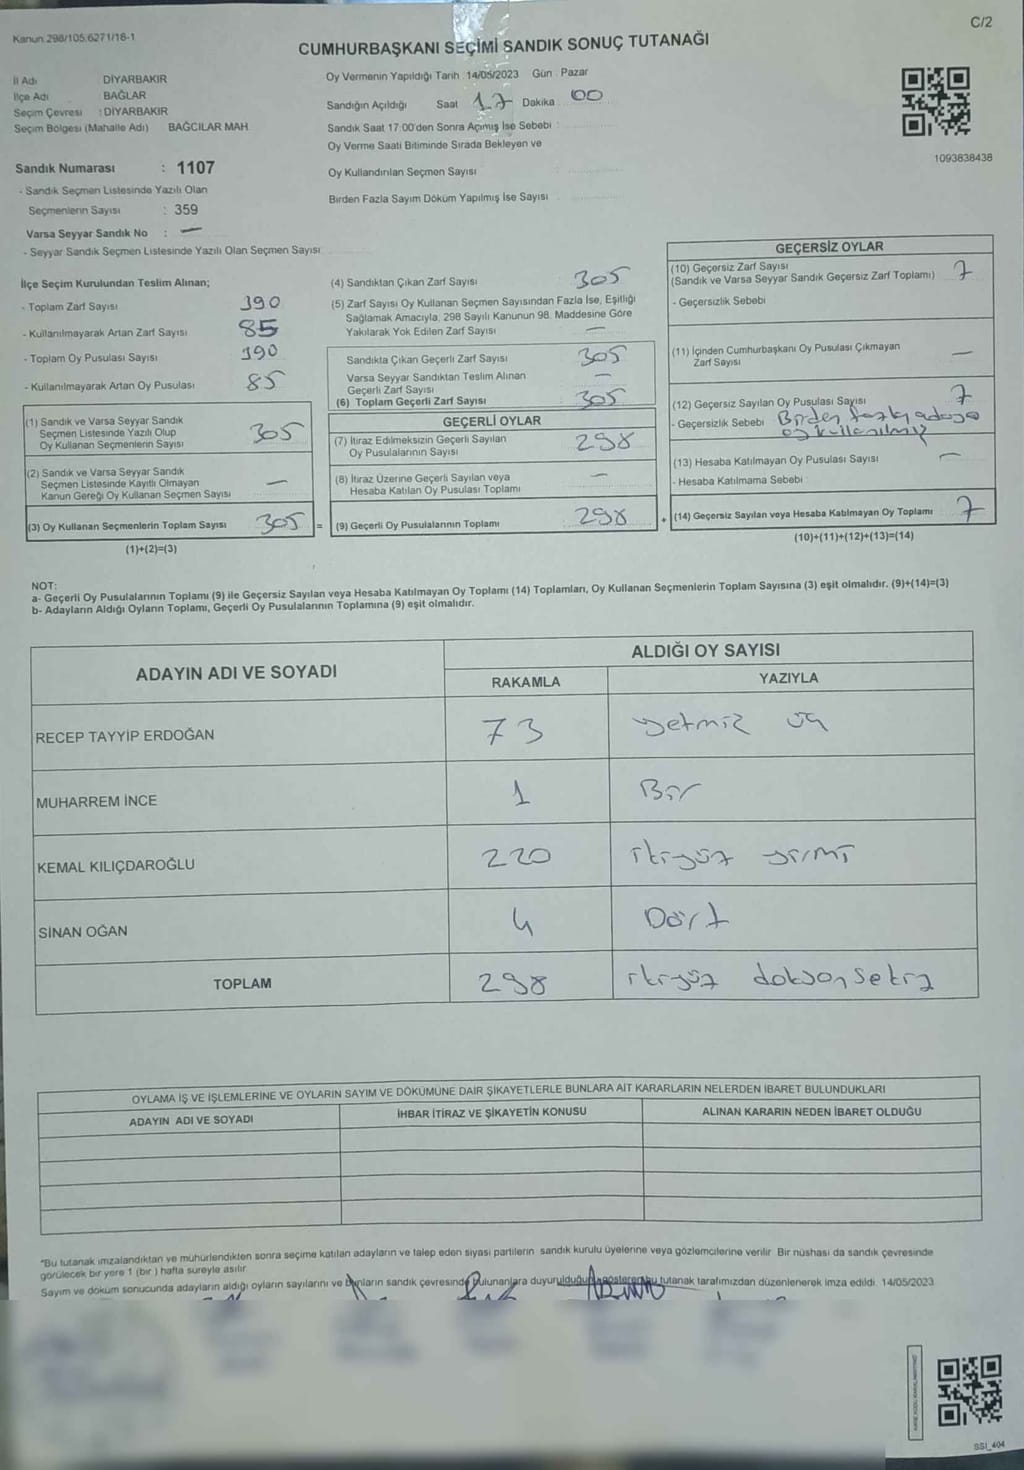 C/2
Kanun 298/105.6271/18-1
CUMHURBAŞKANI SEÇİMİ SANDIK SONUÇ TUTANAĞI
İl Adı DİYARBAKIR
İlçe Adı BAĞLAR
Seçim Çevresi : DİYARBAKIR
Seçim Bölgesi (Mahalle Adı) BAĞCILAR MAH
Sandık Numarası : 1107
- Sandık Seçmen Listesinde Yazılı Olan
Seçmenlerin Sayısı : 359
Varsa Seyyar Sandık No : —
- Seyyar Sandık Seçmen Listesinde Yazılı Olan Seçmen Sayısı
Oy Vermenin Yapıldığı Tarih 14/05/2023 Gün Pazar
Sandığın Açıldığı Saat 17 Dakika 00
Sandık Saat 17:00'den Sonra Açımış İse Sebebi :
Oy Verme Saati Bitiminde Sırada Bekleyen ve
Oy Kullandırılan Seçmen Sayısı
Birden Fazla Sayım Döküm Yapılmış İse Sayısı
1093838438
İlçe Seçim Kurulundan Teslim Alınan;
- Toplam Zarf Sayısı 390
- Kullanılmayarak Artan Zarf Sayısı 85
- Toplam Oy Pusulası Sayısı 390
- Kullanılmayarak Artan Oy Pusulası 85
(1) Sandık ve Varsa Seyyar Sandık
Seçmen Listesinde Yazılı Olup
Oy Kullanan Seçmenlerin Sayısı 305
(2) Sandık ve Varsa Seyyar Sandık
Seçmen Listesinde Kayıtlı Olmayan
Kanun Gereği Oy Kullanan Seçmen Sayısı —
(3) Oy Kullanan Seçmenlerin Toplam Sayısı 305 =
(1)+(2)=(3)
(4) Sandıktan Çıkan Zarf Sayısı 305
(5) Zarf Sayısı Oy Kullanan Seçmen Sayısından Fazla İse, Eşitliği
Sağlamak Amacıyla, 298 Sayılı Kanunun 98. Maddesine Göre
Yakılarak Yok Edilen Zarf Sayısı —
Sandıkta Çıkan Geçerli Zarf Sayısı 305
Varsa Seyyar Sandıktan Teslim Alınan
Geçerli Zarf Sayısı —
(6) Toplam Geçerli Zarf Sayısı 305
GEÇERLİ OYLAR
(7) İtiraz Edilmeksizin Geçerli Sayılan
Oy Pusulalarının Sayısı 298
(8) İtiraz Üzerine Geçerli Sayılan veya
Hesaba Katılan Oy Pusulası Toplamı —
(9) Geçerli Oy Pusulalarının Toplamı 298 +
GEÇERSİZ OYLAR
(10) Geçersiz Zarf Sayısı
(Sandık ve Varsa Seyyar Sandık Geçersiz Zarf Toplamı) 7
- Geçersizlik Sebebi
(11) İçinden Cumhurbaşkanı Oy Pusulası Çıkmayan
Zarf Sayısı —
(12) Geçersiz Sayılan Oy Pusulası Sayısı 7
- Geçersizlik Sebebi Birden fazla adaya
oy kullanılmış
(13) Hesaba Katılmayan Oy Pusulası Sayısı —
- Hesaba Katılmama Sebebi
(14) Geçersiz Sayılan veya Hesaba Katılmayan Oy Toplamı 7
(10)+(11)+(12)+(13)=(14)
NOT:
a- Geçerli Oy Pusulalarının Toplamı (9) ile Geçersiz Sayılan veya Hesaba Katılmayan Oy Toplamı (14) Toplamları, Oy Kullanan Seçmenlerin Toplam Sayısına (3) eşit olmalıdır. (9)+(14)=(3)
b- Adayların Aldığı Oyların Toplamı, Geçerli Oy Pusulalarının Toplamına (9) eşit olmalıdır.
ADAYIN ADI VE SOYADI ALDIĞI OY SAYISI
RAKAMLA YAZIYLA
RECEP TAYYİP ERDOĞAN 73 yetmiş üç
MUHARREM İNCE 1 Bir
KEMAL KILIÇDAROĞLU 220 ikiyüz yirmi
SİNAN OĞAN 4 Dört
TOPLAM 298 ikiyüz doksan sekiz
OYLAMA İŞ VE İŞLEMLERİNE VE OYLARIN SAYIM VE DÖKÜMÜNE DAİR ŞİKAYETLERLE BUNLARA AİT KARARLARIN NELERDEN İBARET BULUNDUKLARI
ADAYIN ADI VE SOYADI İHBAR İTİRAZ VE ŞİKAYETİN KONUSU ALINAN KARARIN NEDEN İBARET OLDUĞU
*Bu tutanak imzalandıktan ve mühürlendikten sonra seçime katılan adayların ve talep eden siyasi partilerin sandık kurulu üyelerine veya gözlemcilerine verilir. Bir nüshası da sandık çevresinde
görülecek bir yere 1 (bir) hafta süreyle asılır.
Sayım ve döküm sonucunda adayların aldığı oyların sayılarını ve bunların sandık çevresinde bulunanlara duyurulduğunu gösteren bu tutanak tarafımızdan düzenlenerek imza edildi. 14/05/2023
SSI_404